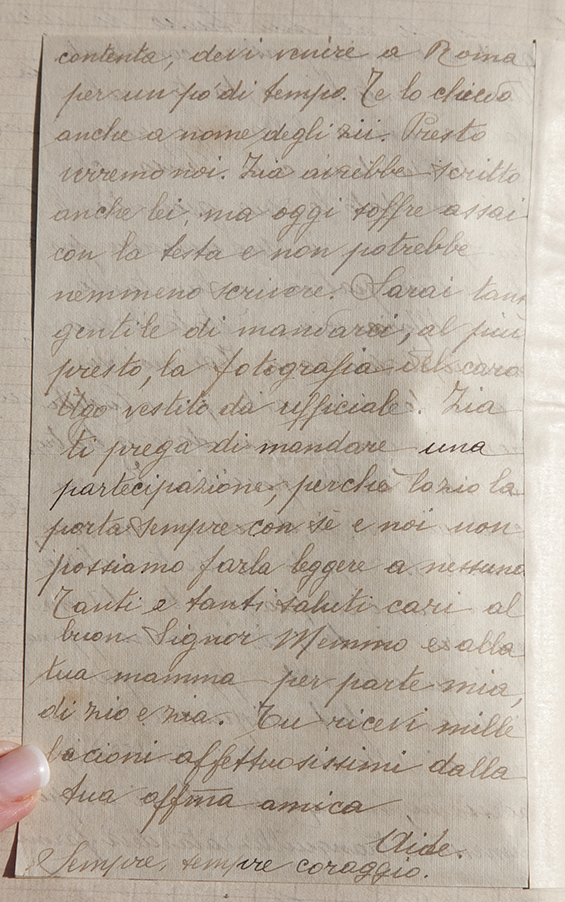 contenta, devi venire a Roma
per un po' di tempo. Te lo chiedo
anche a nome degli zii. Presto
verremo noi. Zia avrebbe scritto
anche lei, ma oggi soffre assai
con la testa e non potrebbe
nemmeno scrivere. Sarai tant
gentile di mandarci, al più
presto, la fotografia del caro
Ugo vestito da ufficiale. Zia
ti prega di mandare una
partecipazione, perchè lo zio la
porta sempre con sè e noi non
possiamo farla leggere a nessuno
Tanti e tanti saluti cari al
buon Signor Memmo e alla
tua mamma per parte mia,
di zio e zia. Tu ricevi mille
bacioni affettuosissimi dalla
tua affma amica
Aide.
Sempre, sempre coraggio.